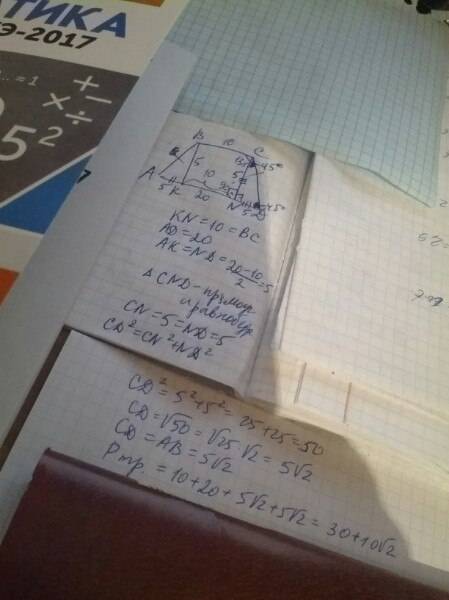 АТИКА
Э-2017
... = 1
+ −
× ÷
5²
B 10 C
5
45°
A
10
5 K 20 N 5 D
45°
KN = 10 = BC
AD = 20
AK = ND = 20-10/2 = 5
△CND - прямоуг
и равнобед
CN = 5 = ND = 5
CD² = CN² + ND²
CD² = 5² + 5² = 25 + 25 = 50
CD = √50 = √25 · √2 = 5√2
CD = AB = 5√2
Pтр. = 10 + 20 + 5√2 + 5√2 = 30 + 10√2